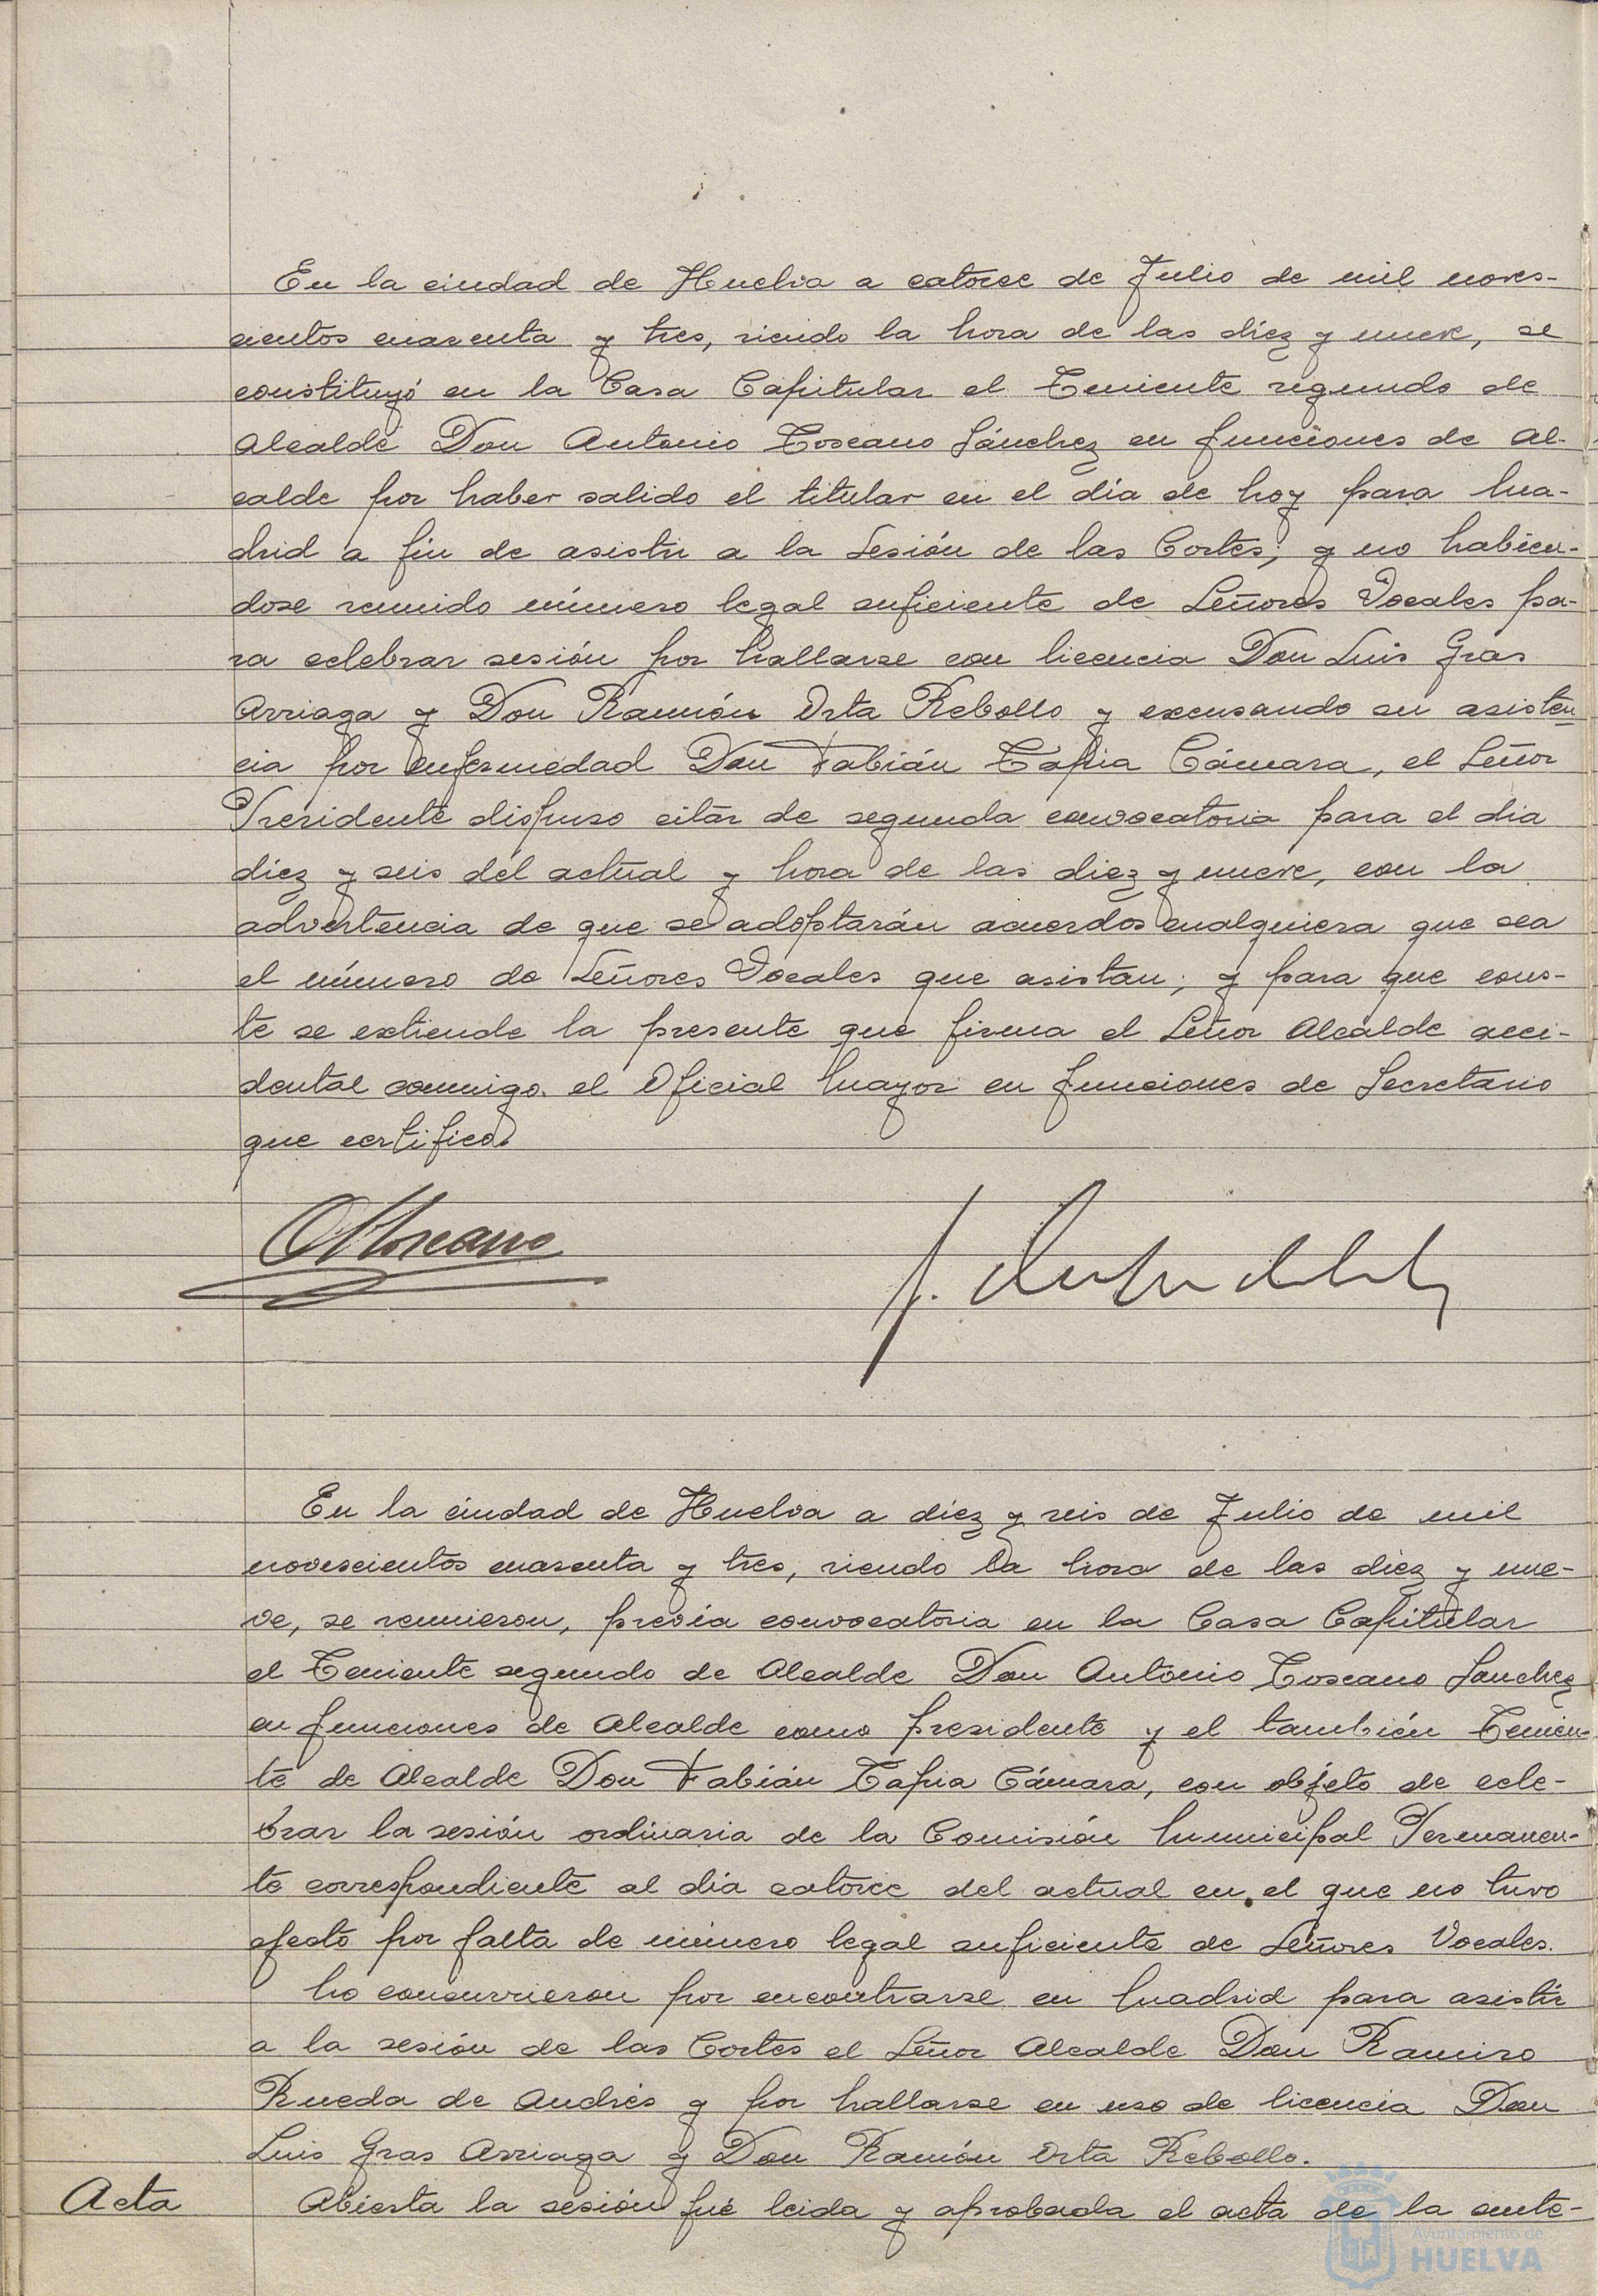 En la ciudad de Huelva a catorce de Julio de mil noves-
cientos cuarenta y tres, siendo la hora de las diez y nueve, se
constituyó en la Casa Capitular el Teniente segundo de
Alcalde Don Antonio Toscano Sánchez en funciones de Al-
calde por haber salido el titular en el día de hoy para Ma-
drid a fin de asistir a la Sesión de las Cortes; y no habien-
dose reunido número legal suficiente de Señores Vocales pa-
ra celebrar sesión por hallarse con licencia Don Luis Gras
Arriaga y Don Ramón Orta Rebollo y excusando su asisten-
cia por enfermedad Don Fabián Tapia Cámara, el Señor
Presidente dispuso citar de segunda convocatoria para el dia
diez y seis del actual y hora de las diez y nueve, con la
advertencia de que se adoptarán acuerdos cualquiera que sea
el número de Señores Vocales que asistan; y para que cons-
te se extiende la presente que firma el Señor Alcalde acci-
dental conmigo. el Oficial Mayor en funciones de Secretario
que certifico.
A Toscano
En la ciudad de Huelva a diez y seis de Julio de mil
novescientos cuarenta y tres, siendo la hora de las diez y nue-
ve, se reunieron, previa convocatoria en la Casa Capitular
el Teniente segundo de Alcalde Don Antonio Toscano Sanchez
en funciones de Alcalde como presidente y el también Tenien-
te de Alcalde Don Fabián Tapia Cámara, con objeto de cele-
brar la sesión ordinaria de la Comisión Municipal Permanen-
te correspondiente al día catorce del actual en el que no tuvo
efecto por falta de número legal suficiente de Señores Vocales.
No concurrieron por encontrarse en Madrid para asistir
a la sesión de las Cortes el Señor Alcalde Don Ramiro
Rueda de Andrés y por hallarse en uso de licencia Don
Luis Gras Arriaga y Don Ramón Orta Rebollo.
Acta Abierta la sesión fué leida y aprobada el acta de la ante-
Ayuntamiento de
HUELVA